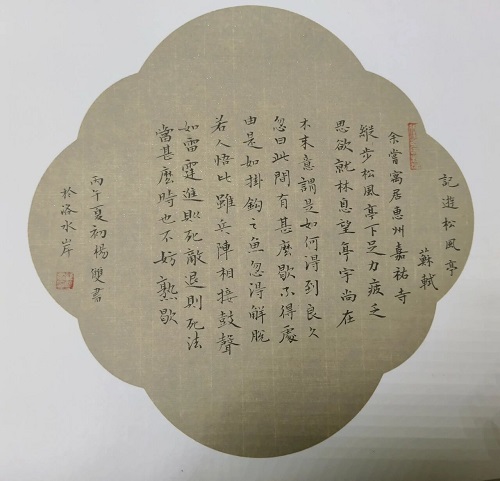 記遊松風亭
蘇軾
余嘗寓居惠州嘉祐寺
縱步松風亭下足力疲乏
思欲就林息望亭宇尚在
木末意謂是如何得到良久
忽曰此間有甚麽歇不得處
由是如掛鉤之魚忽得解脫
若人悟此雖兵陣相接鼓聲
如雷霆進則死敵退則死法
當甚麽時也不妨熟歇
丙午夏初楊雙書
於洛水岸